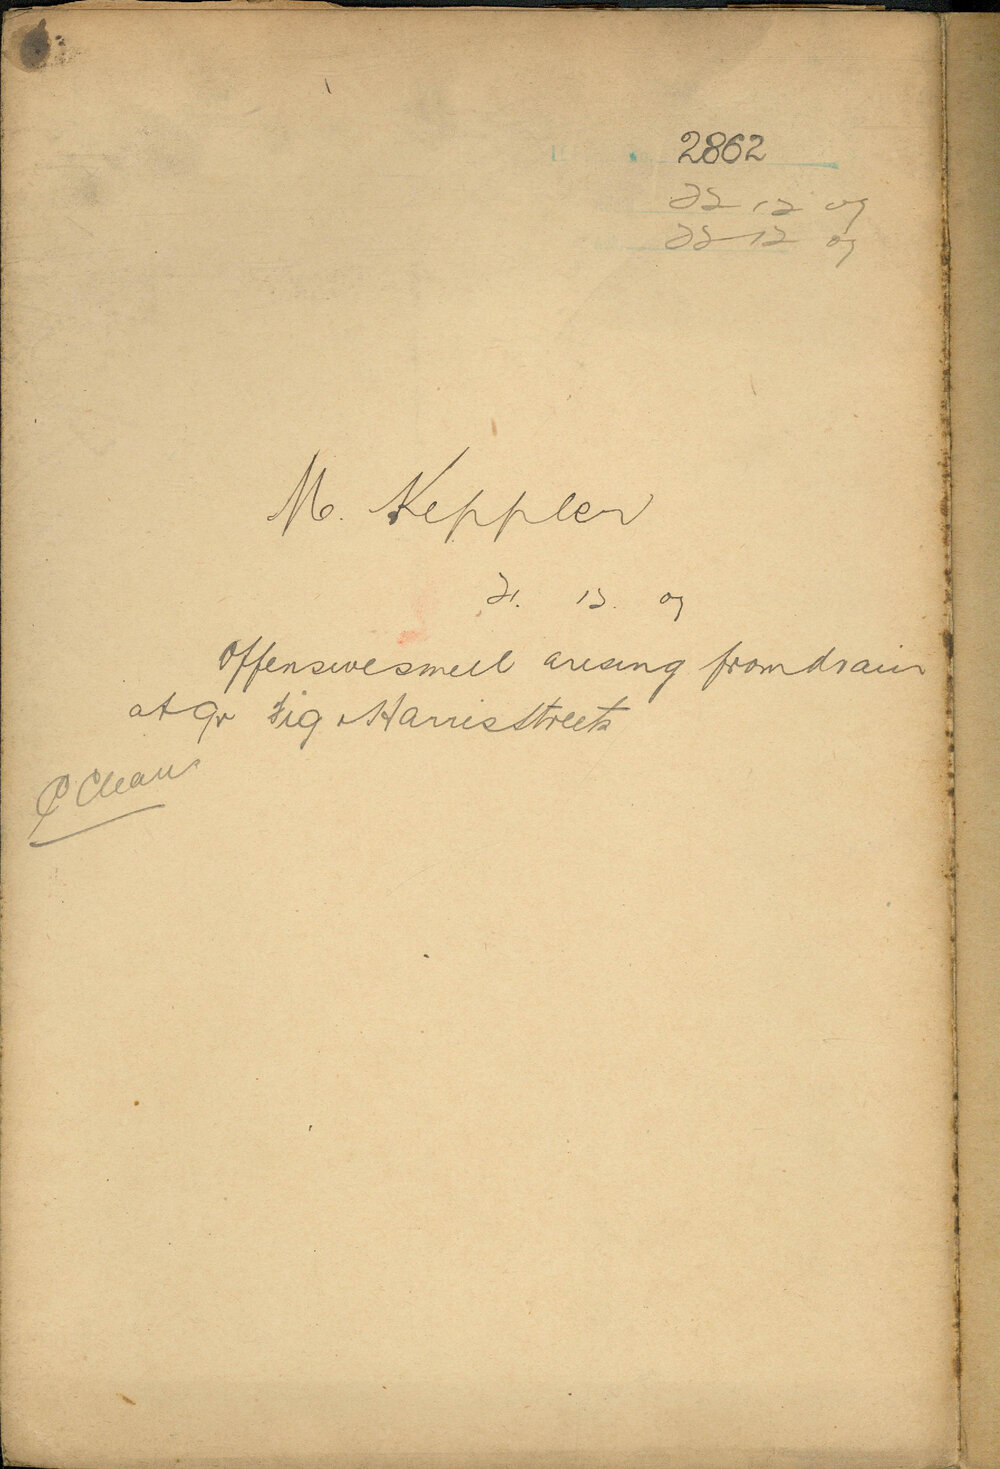 2862
22 12 09
22 12 09
M. Keppler
21. 12. 09
Offensive smell arising from drain
at Fig & Harris Streets